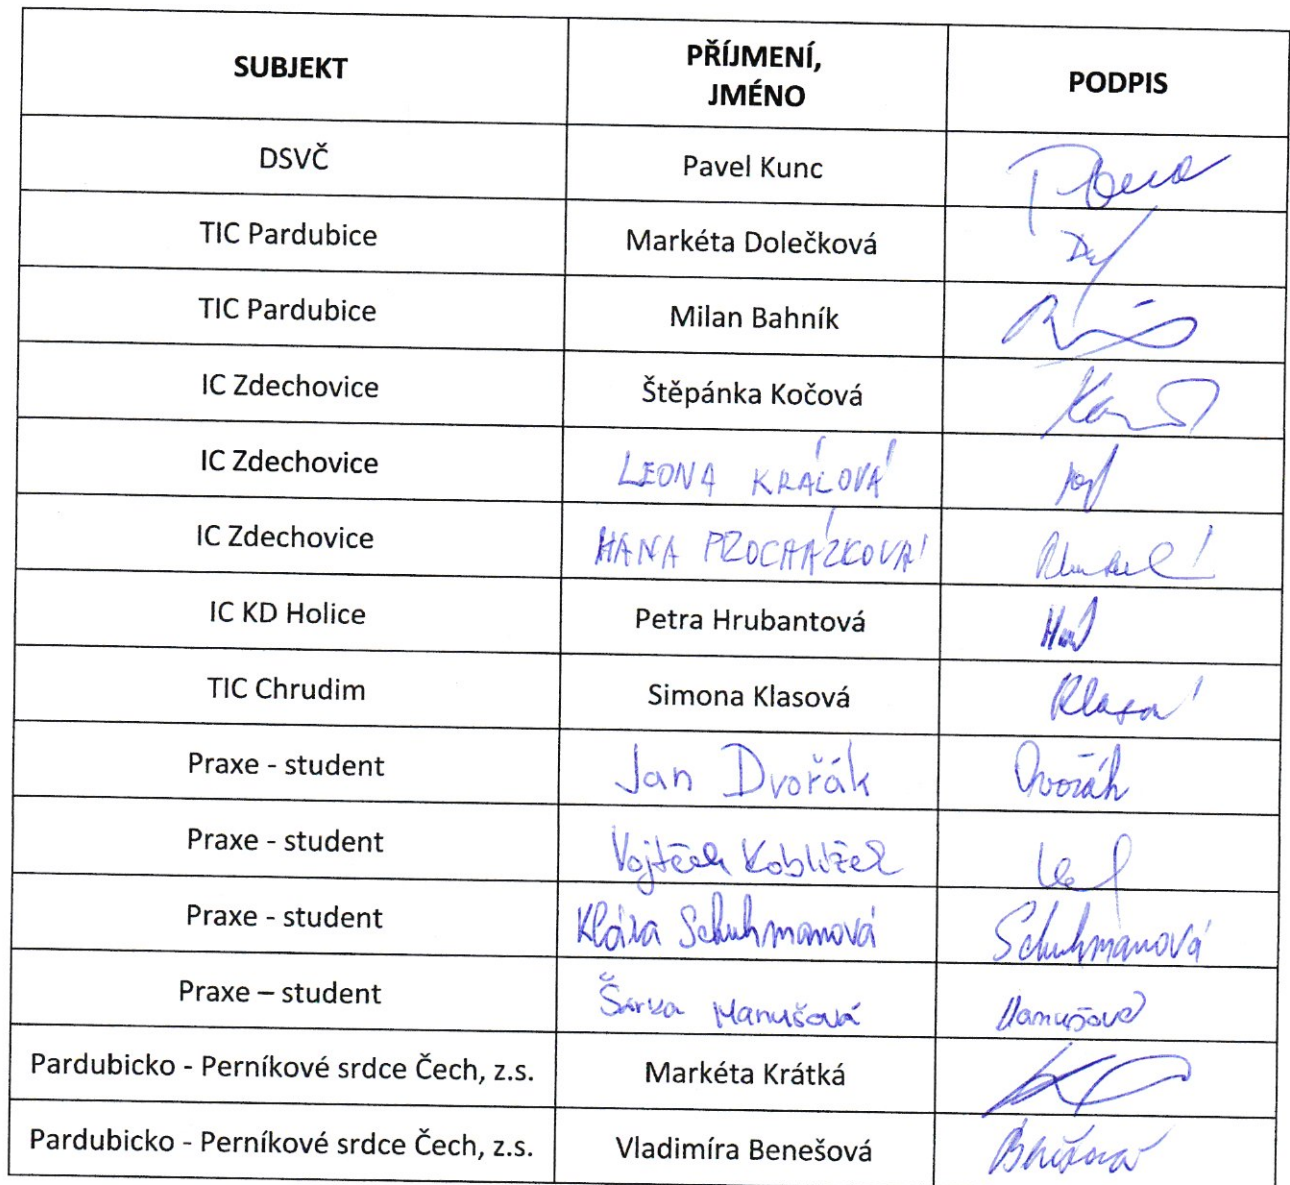 SUBJEKT
PŘÍJMENÍ,
JMÉNO
PODPIS
DSVČ Pavel Kunc
TIC Pardubice Markéta Dolečková
TIC Pardubice Milan Bahník
IC Zdechovice Štěpánka Kočová
IC Zdechovice LEONA KRÁLOVÁ
IC Zdechovice HANA PROCHÁZKOVÁ
IC KD Holice Petra Hrubantová
TIC Chrudim Simona Klasová
Praxe - student Jan Dvořák Dvořák
Praxe - student Vojtěch Koblížek
Praxe - student Klára Schuhmanová Schuhmanová
Praxe – student Šárka Hanušová Hanušová
Pardubicko - Perníkové srdce Čech, z.s. Markéta Krátká
Pardubicko - Perníkové srdce Čech, z.s. Vladimíra Benešová